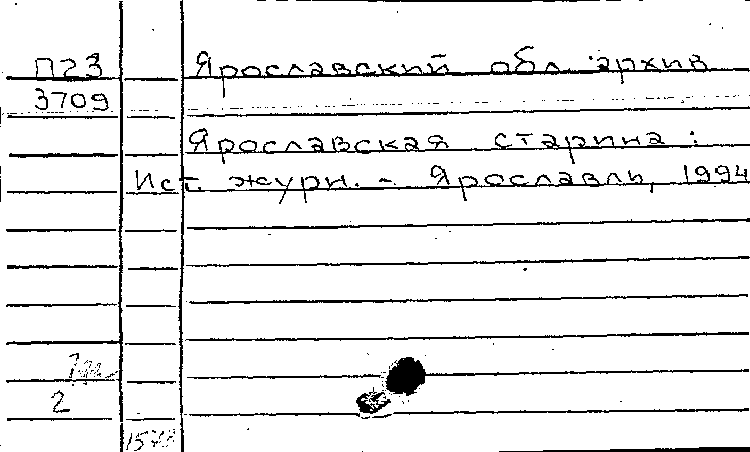 П23 Ярославский обл. архив
3709
Ярославская старина:
Ист. журн. - Ярославль, 1994
2